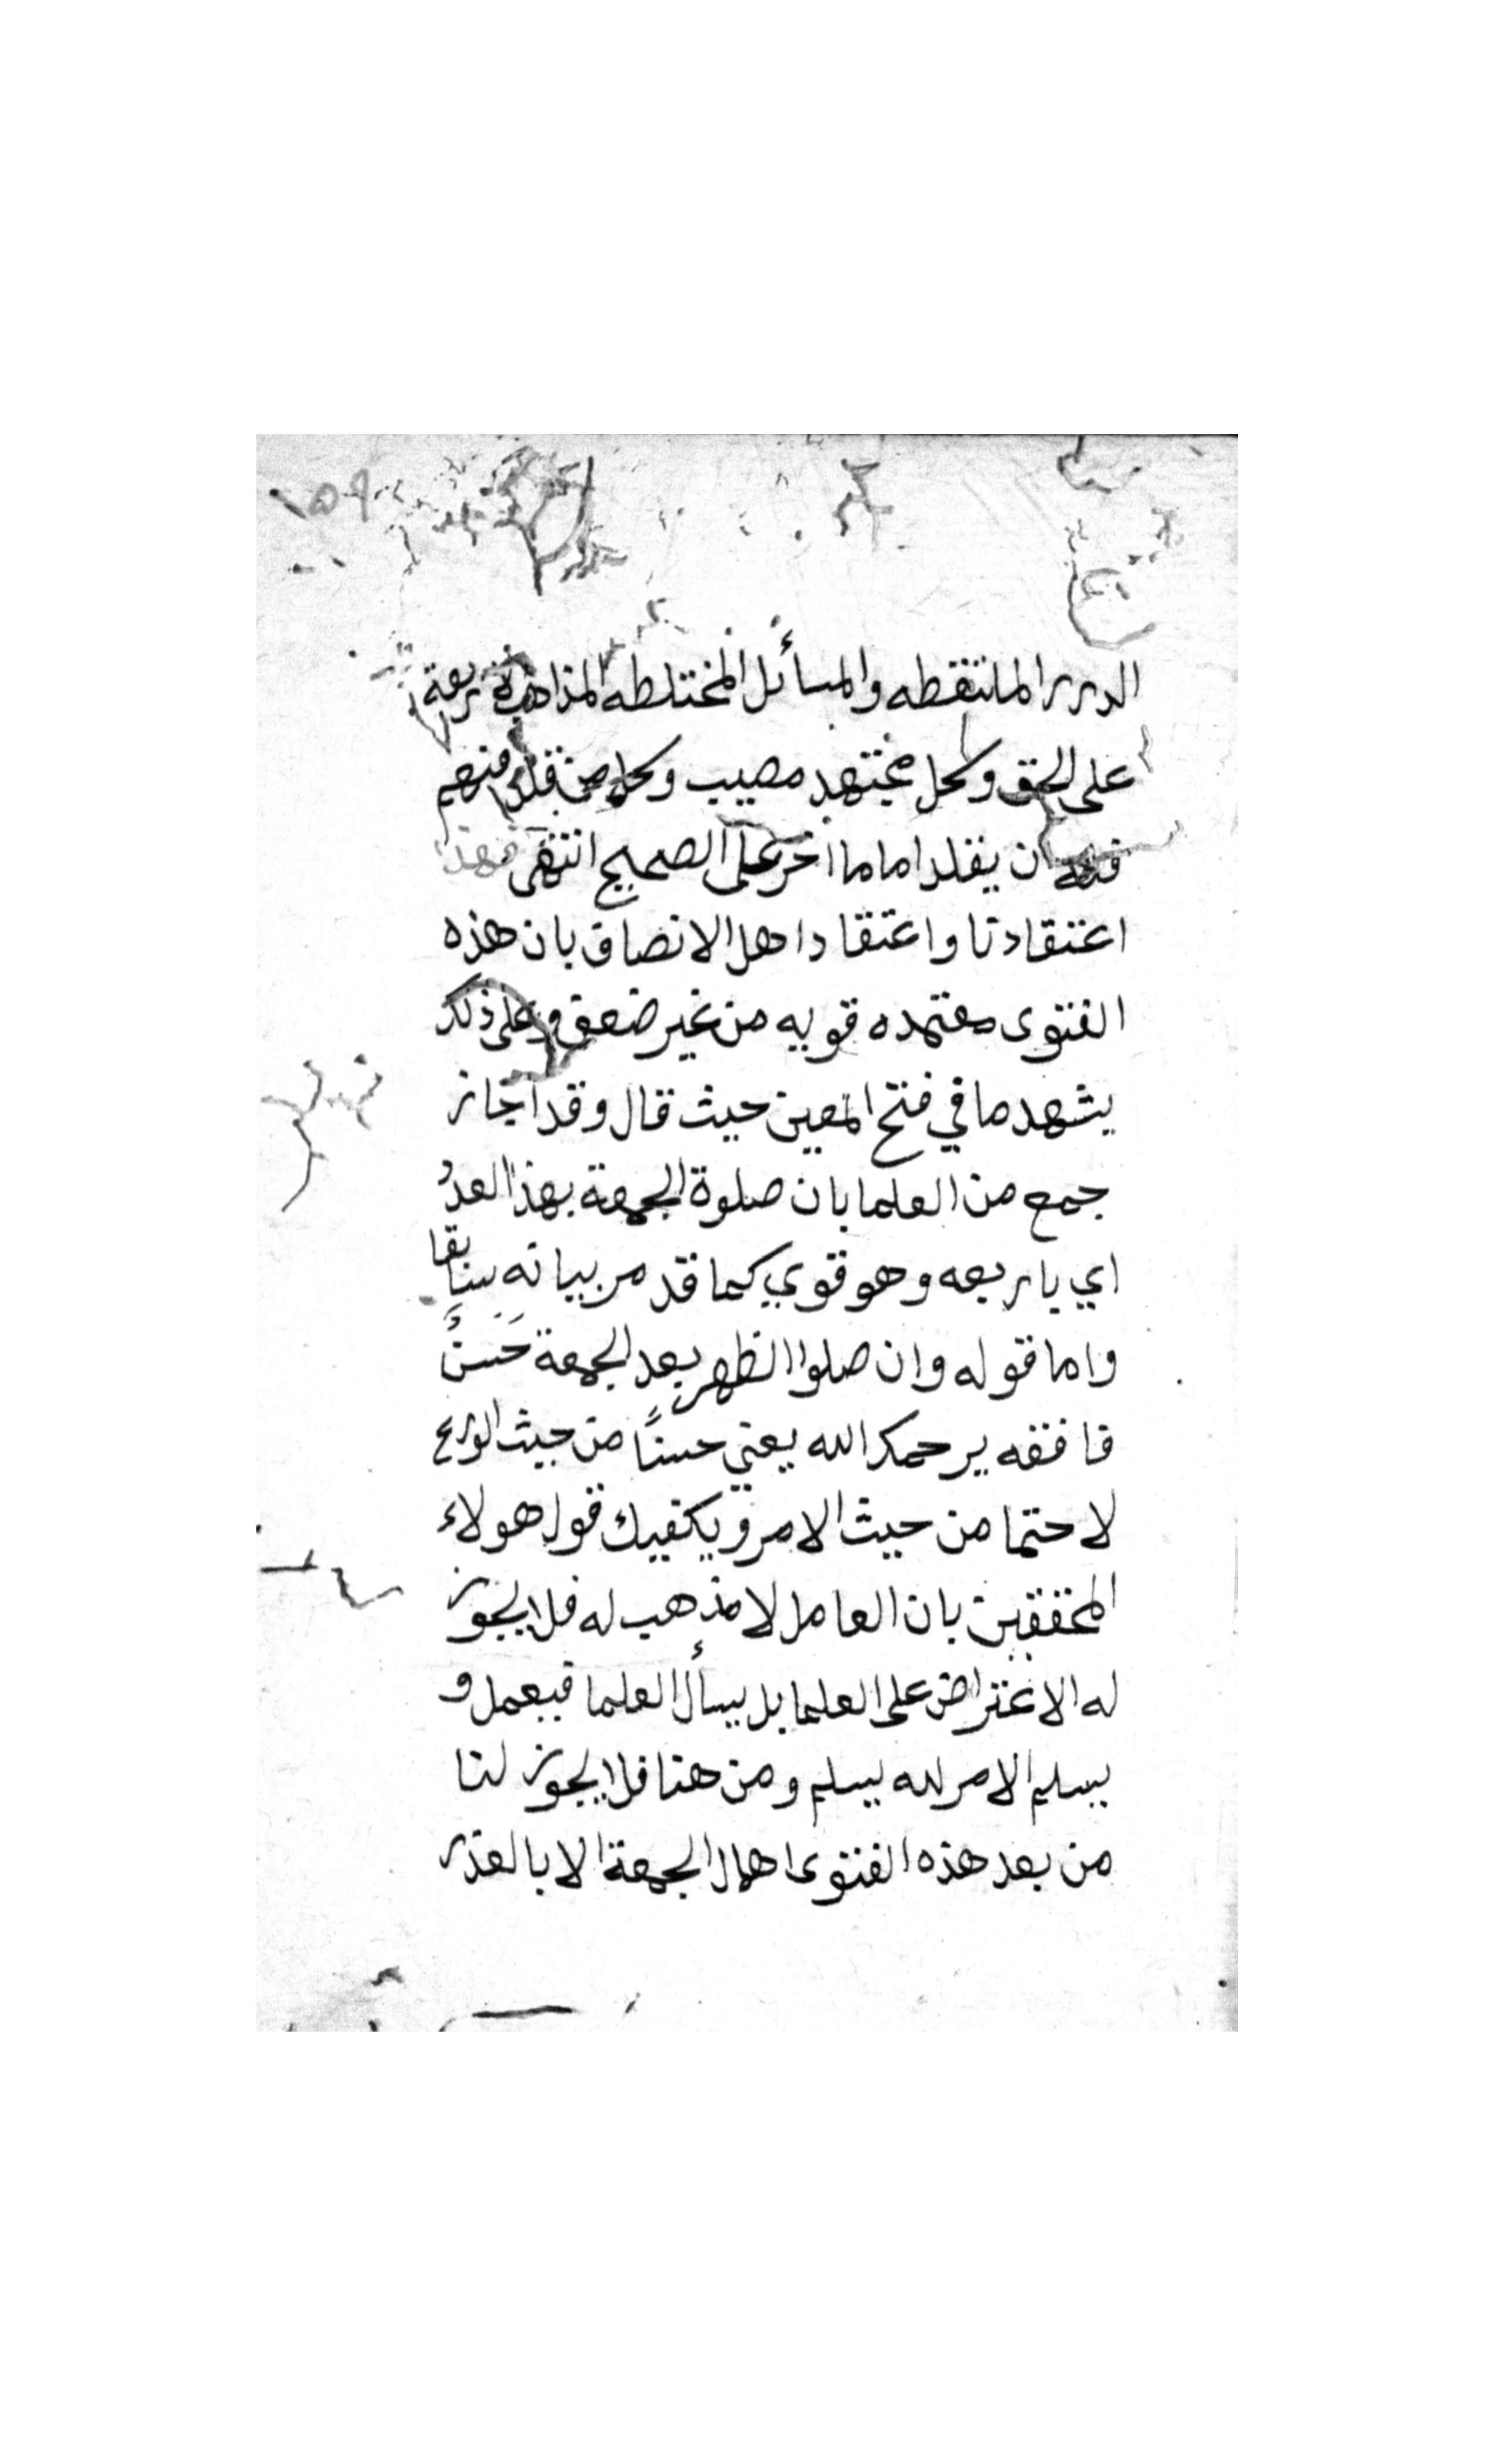 ١٥٩
٤١
الدرر الملتقطه والمسائل المختلطه المذاهب الاربعة
على الحق وكل مجتهد مصيب وكل من قلد منهم
فله ان يقلد اماما اخر على الصحيح انتهى فهذا
اعتقادنا واعتقاد اهل الانصاف بان هذه
الفتوى معتمده قويه من غير ضعف وعلى ذلك
يشهد ما في فتح المعين حيث قال وقد اجاز
جمع من العلما بان صلوة الجمعة بهذا العدد
اي باربعه وهو قوي كما قد مر بيانه سابقا
واما قوله وان صلوا الظهر بعد الجمعة حَسَنٌ
فافقه يرحمك الله يعني حسنًا من حيث الورع
لا حتما من حيث الامر ويكفيك قول هولاء
المحققين بان العامل لا مذهب له فلا يجوز
له الاعتراض على العلما بل يسأل العلما فيعمل و
يسلم الامر لله يسلم ومن هنا فلا يجوز لنا
من بعد هذه الفتوى اهمال الجمعة الا بالعذر